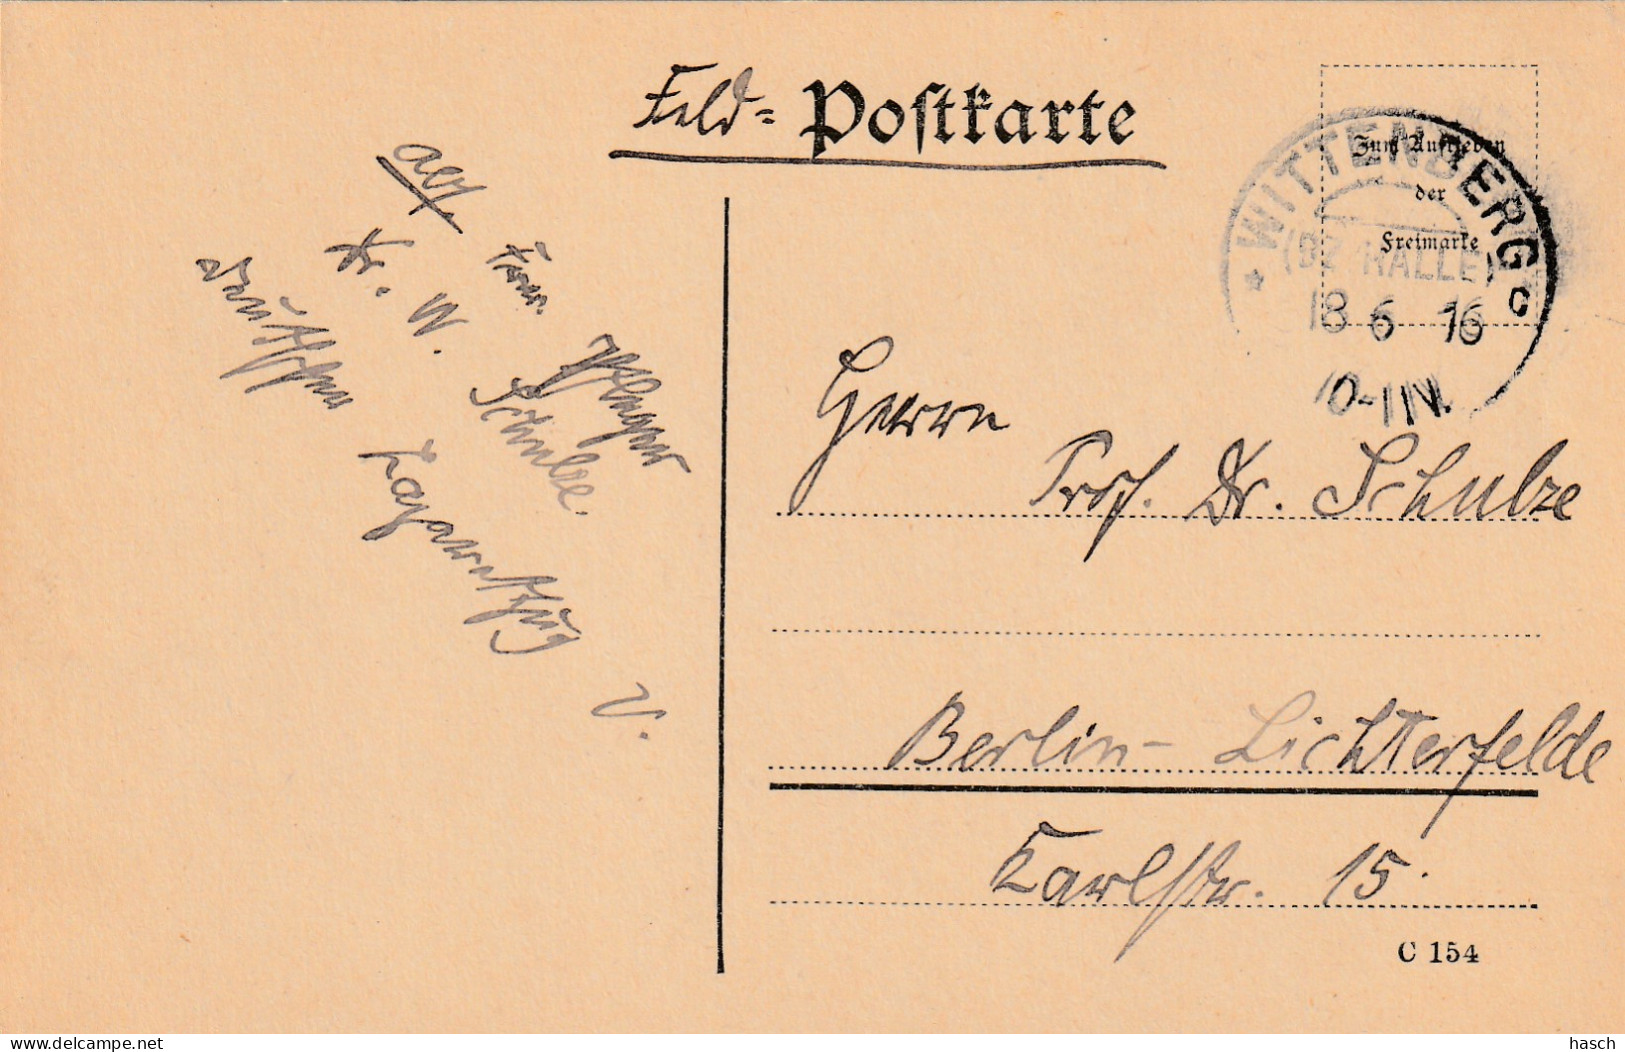 Feld-Postkarte
Zum Aufkleben
der
Freimarke
* WITTENBERG * c
(BZ. HALLE)
18 6 16
10-11V.
Abs.
Frw. Pfleger
Kr. W. Schulze.
deutscher Lazarettzug
V.
Herrn
Prof. Dr. Schulze
Berlin-Lichterfelde
Karlstr. 15.
C 154
delcampe.net
hasch